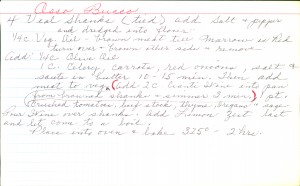 Osso Bucco
4 Veal Shanks (tied) add Salt + pepper
and dredged into flour
1/4 C Veg. Oil - brown meat til Marrow solid
turn over - brown other side + remove
Add: 1/4 C Olive Oil
1 C: Celery, carrots, red onions salt +
saute in butter 10 - 15 min. Then add
meat to veg. (add 2 C White Wine into pan
from browned shank - simmer 3 min) 1 pt.
crushed tomatoes, beef stock, thyme, oregano - sage
Pour Wine over shanks. Add Lemon Zest last
and let come to a boil.
Place into oven & bake 325° - 2 hrs.